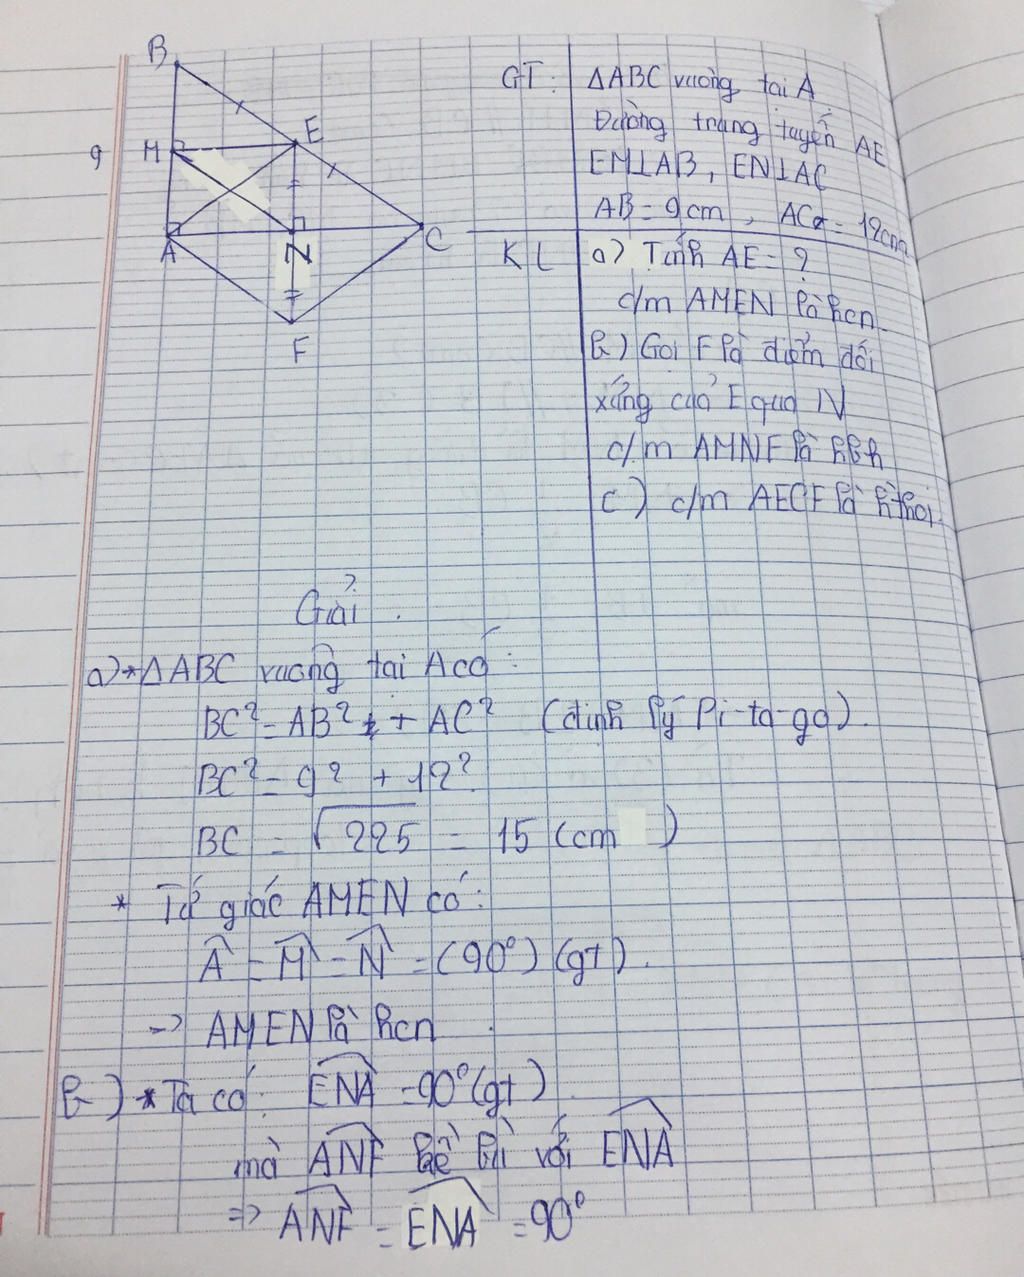 B
E
9 M
A
N
C
F
GT: ΔABC vuông tại A
Đường trung tuyến AE
EM⊥AB, EN⊥AC
AB = 9cm, AC = 12cm
KL a) Tính AE = ?
c/m AMEN là hcn
b) Gọi F là điểm đối
xứng của E qua N
c/m AMNF là hbh
c) c/m AECF là hthoi.
Giải.
a) * ΔABC vuông tại A có:
BC² = AB² + AC² (định lý Pi-ta-go).
BC² = 9² + 12².
BC = √225 = 15 (cm)
* Tứ giác AMEN có:
Â = M̂ = N̂ = (90°) (gt).
-> AMEN là hcn.
b) * Ta có: ENA = 90° (gt)
mà ANF kề bù với ENA
=> ANF = ENA = 90°